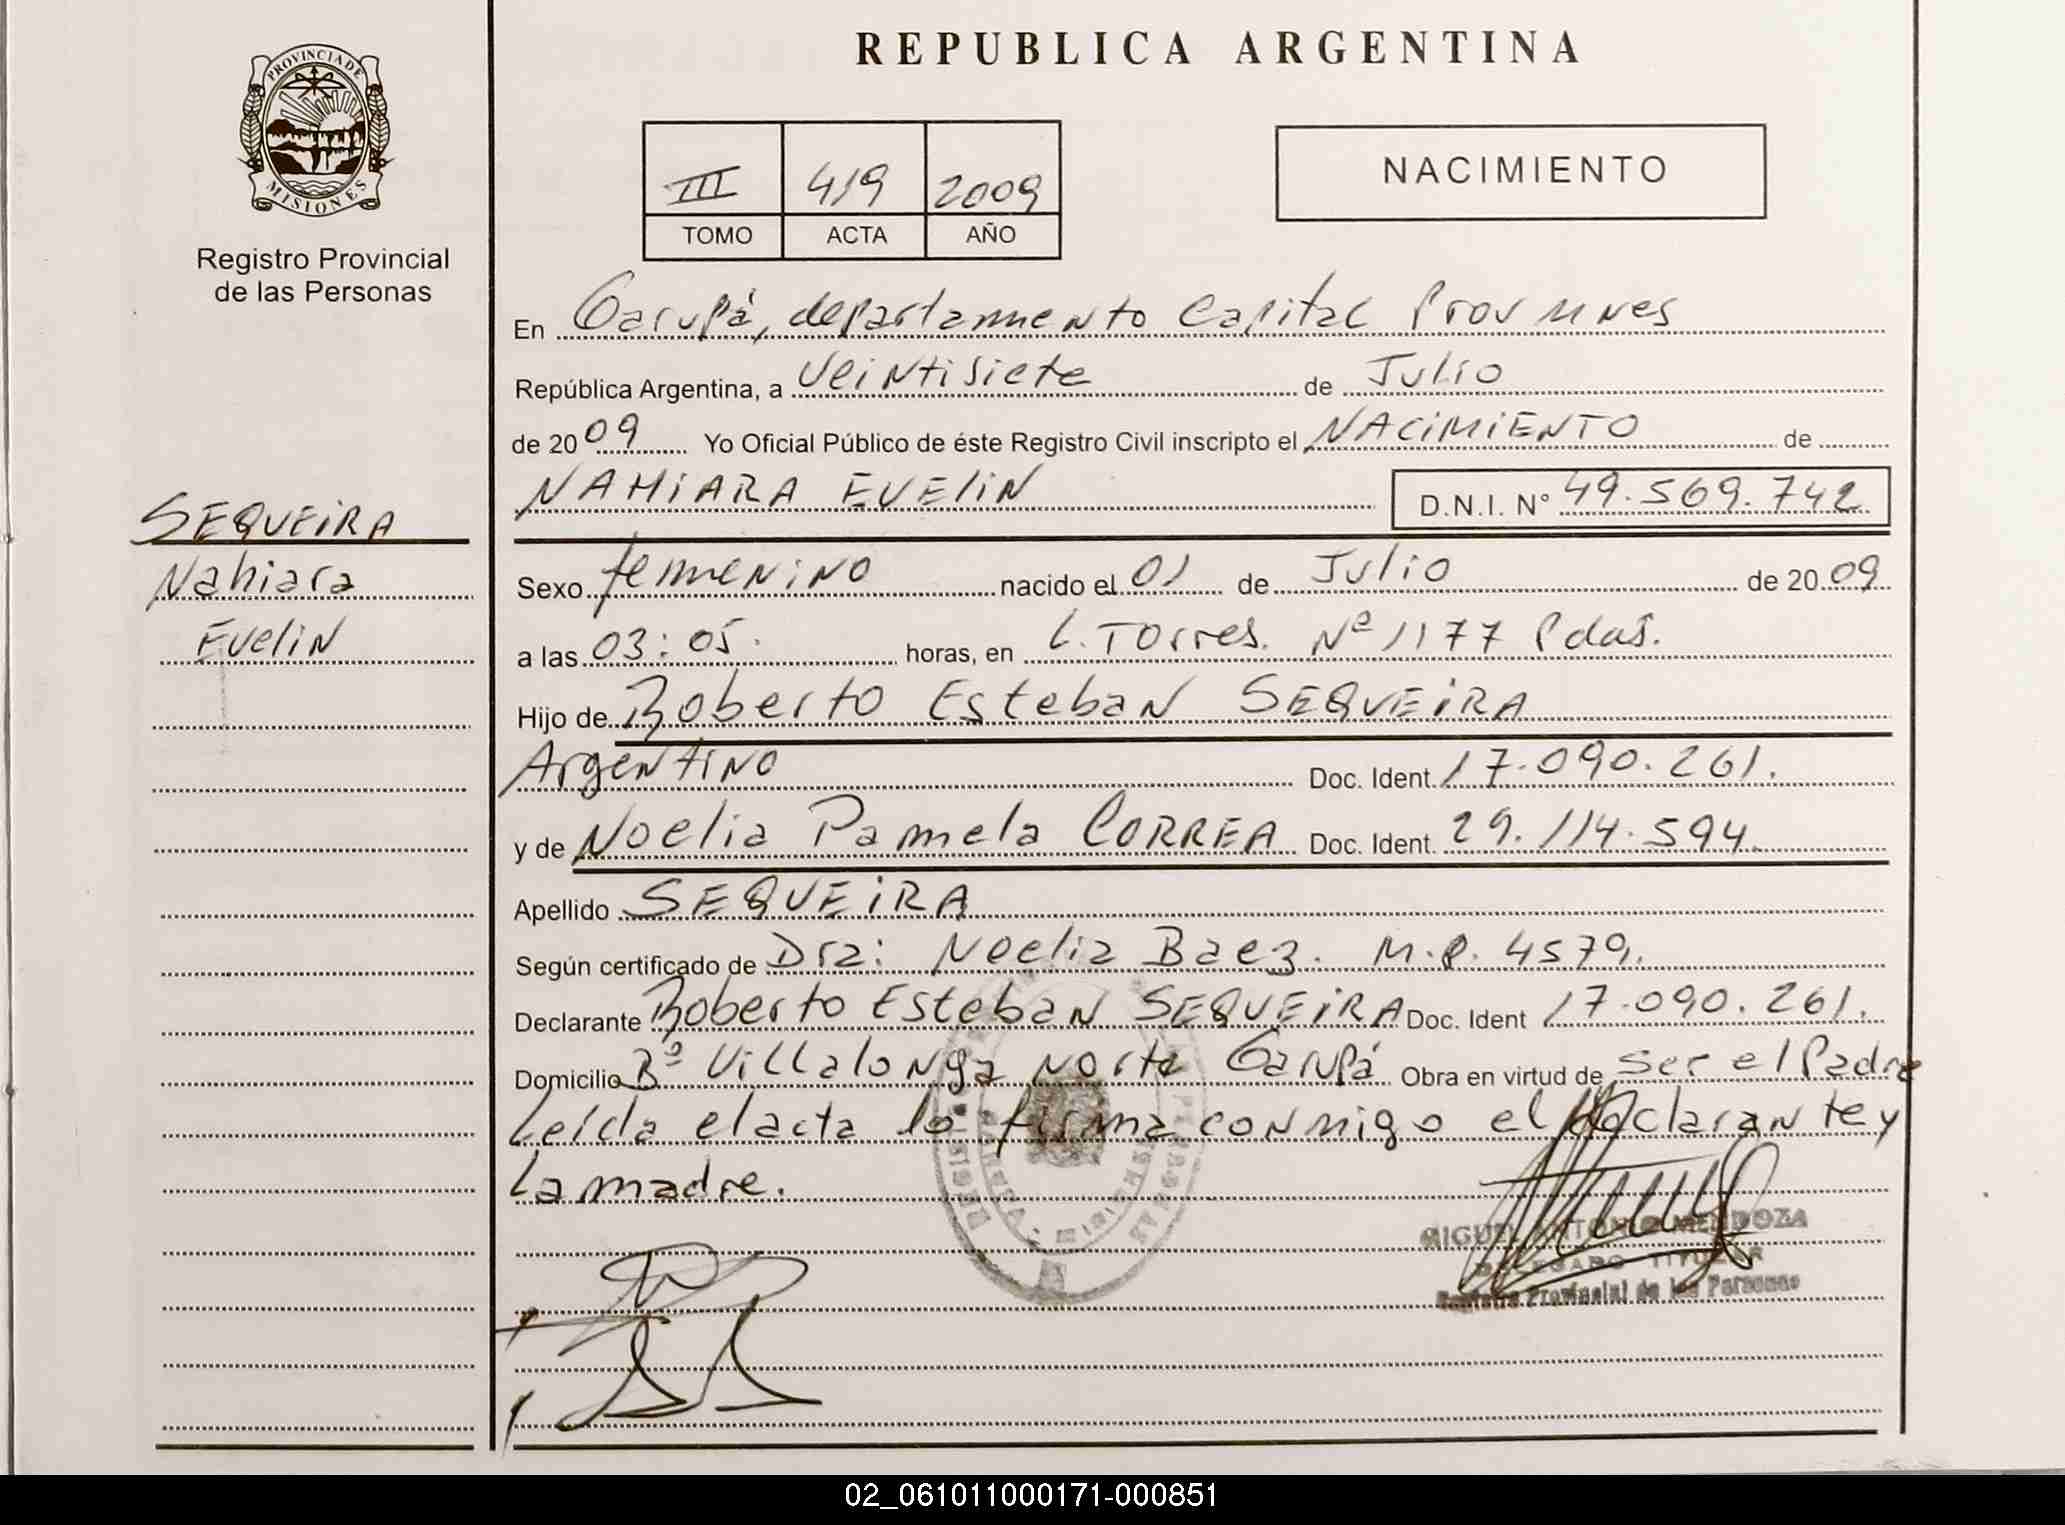 PROVINCIA DE
MISIONES
Registro Provincial
de las Personas
SEQUEIRA
Nahiara
Evelin
REPUBLICA ARGENTINA
III 419 2009
TOMO ACTA AÑO
NACIMIENTO
En Garupá, departamento Capital Prov
República Argentina, a Veintisiete de Julio
de 2009 Yo Oficial Público de éste Registro Civil inscripto el NACIMIENTO de
NAHIARA EVELIN D.N.I. N° 49.569.742
Sexo femenino nacido el 01 de Julio de 2009
a las 03:05. horas, en L. Torres. Nº 1177 Pdas.
Hijo de Roberto Esteban SEQUEIRA
Argentino Doc. Ident. 17.090.261.
y de Noelia Pamela CORREA Doc. Ident. 29.114.594.
Apellido SEQUEIRA
Según certificado de Dra: Noelia Baez. M.P. 4579.
Declarante Roberto Esteban SEQUEIRA Doc. Ident 17.090.261.
Domicilio Bº Villalonga Norte Garupá Obra en virtud de ser el Padre
Leída el acta lo firma conmigo el declarante y
la madre.
MIGUEL ANTONIO MENDOZA
DELEGADO TITULAR
Registro Provincial de las Personas
02_061011000171-000851